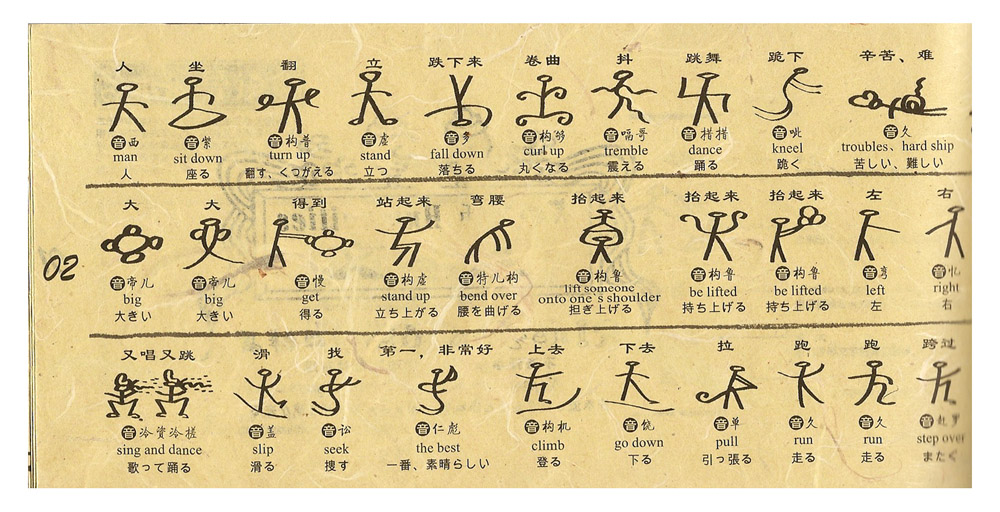 人 坐 翻 立 跌下来 卷曲 抖 跳舞 跪下 辛苦、难
音西 音紫 音构普 音虚 音多 音构够 音嗝哥 音搓搓 音咣 音久
man sit down turn up stand fall down curl up tremble dance kneel troubles、hard ship
人 座る 翻す、くつがえる 立つ 落ちる 丸くなる 震える 踊る 跪く 苦しい、難しい
大 大 得到 站起来 弯腰 抬起来 抬起来 抬起来 左 右
02
音帝儿 音帝儿 音慢 音构虚 音特儿构 音构鲁 音构鲁 音构鲁
big big get stand up bend over lift someone onto one's shoulder be lifted be lifted left right
大きい 大きい 得る 立ち上がる 腰を曲げる 担ぎ上げる 持ち上げる 持ち上げる 左 右
又唱又跳 滑 找 第一，非常好 上去 下去 拉 跑 跑 跨过
音盖 音讼 音仁彪 音构机 音饶 音单 音久 音久
sing and dance slip seek the best climb go down pull run run step over
歌って踊る 滑る 捜す 一番、素晴らしい 登る 下る 引っ張る 走る 走る またぐ